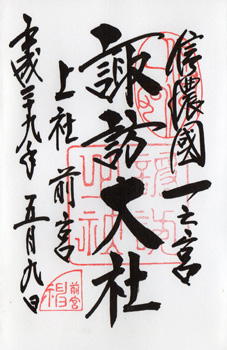 信濃國一之宮
諏訪大社
上社前宮
平成二十九年五月九日
前宮